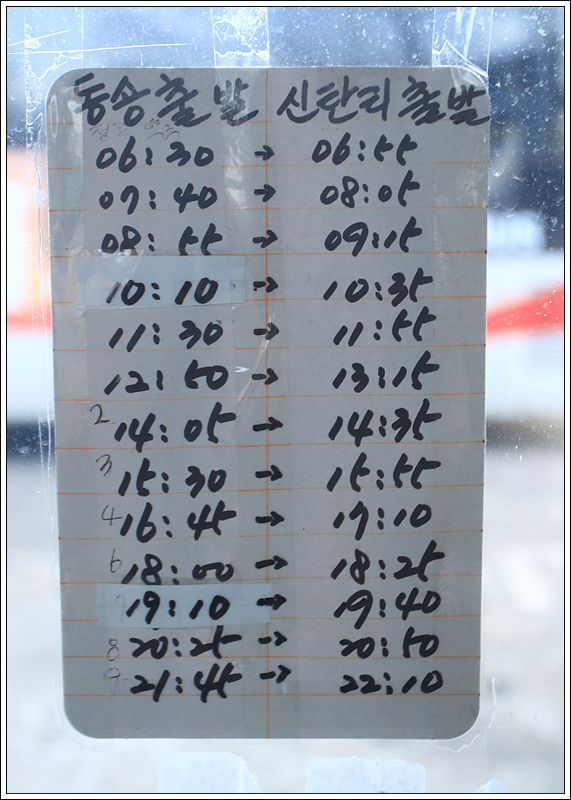 동송출발 신탄리출발
06:30 → 06:55
07:40 → 08:05
08:55 → 09:15
10:10 → 10:35
11:30 → 11:55
12:50 → 13:15
2 14:05 → 14:35
3 15:30 → 15:55
4 16:45 → 17:10
6 18:00 → 18:25
19:10 → 19:40
8 20:25 → 20:50
9 21:45 → 22:10